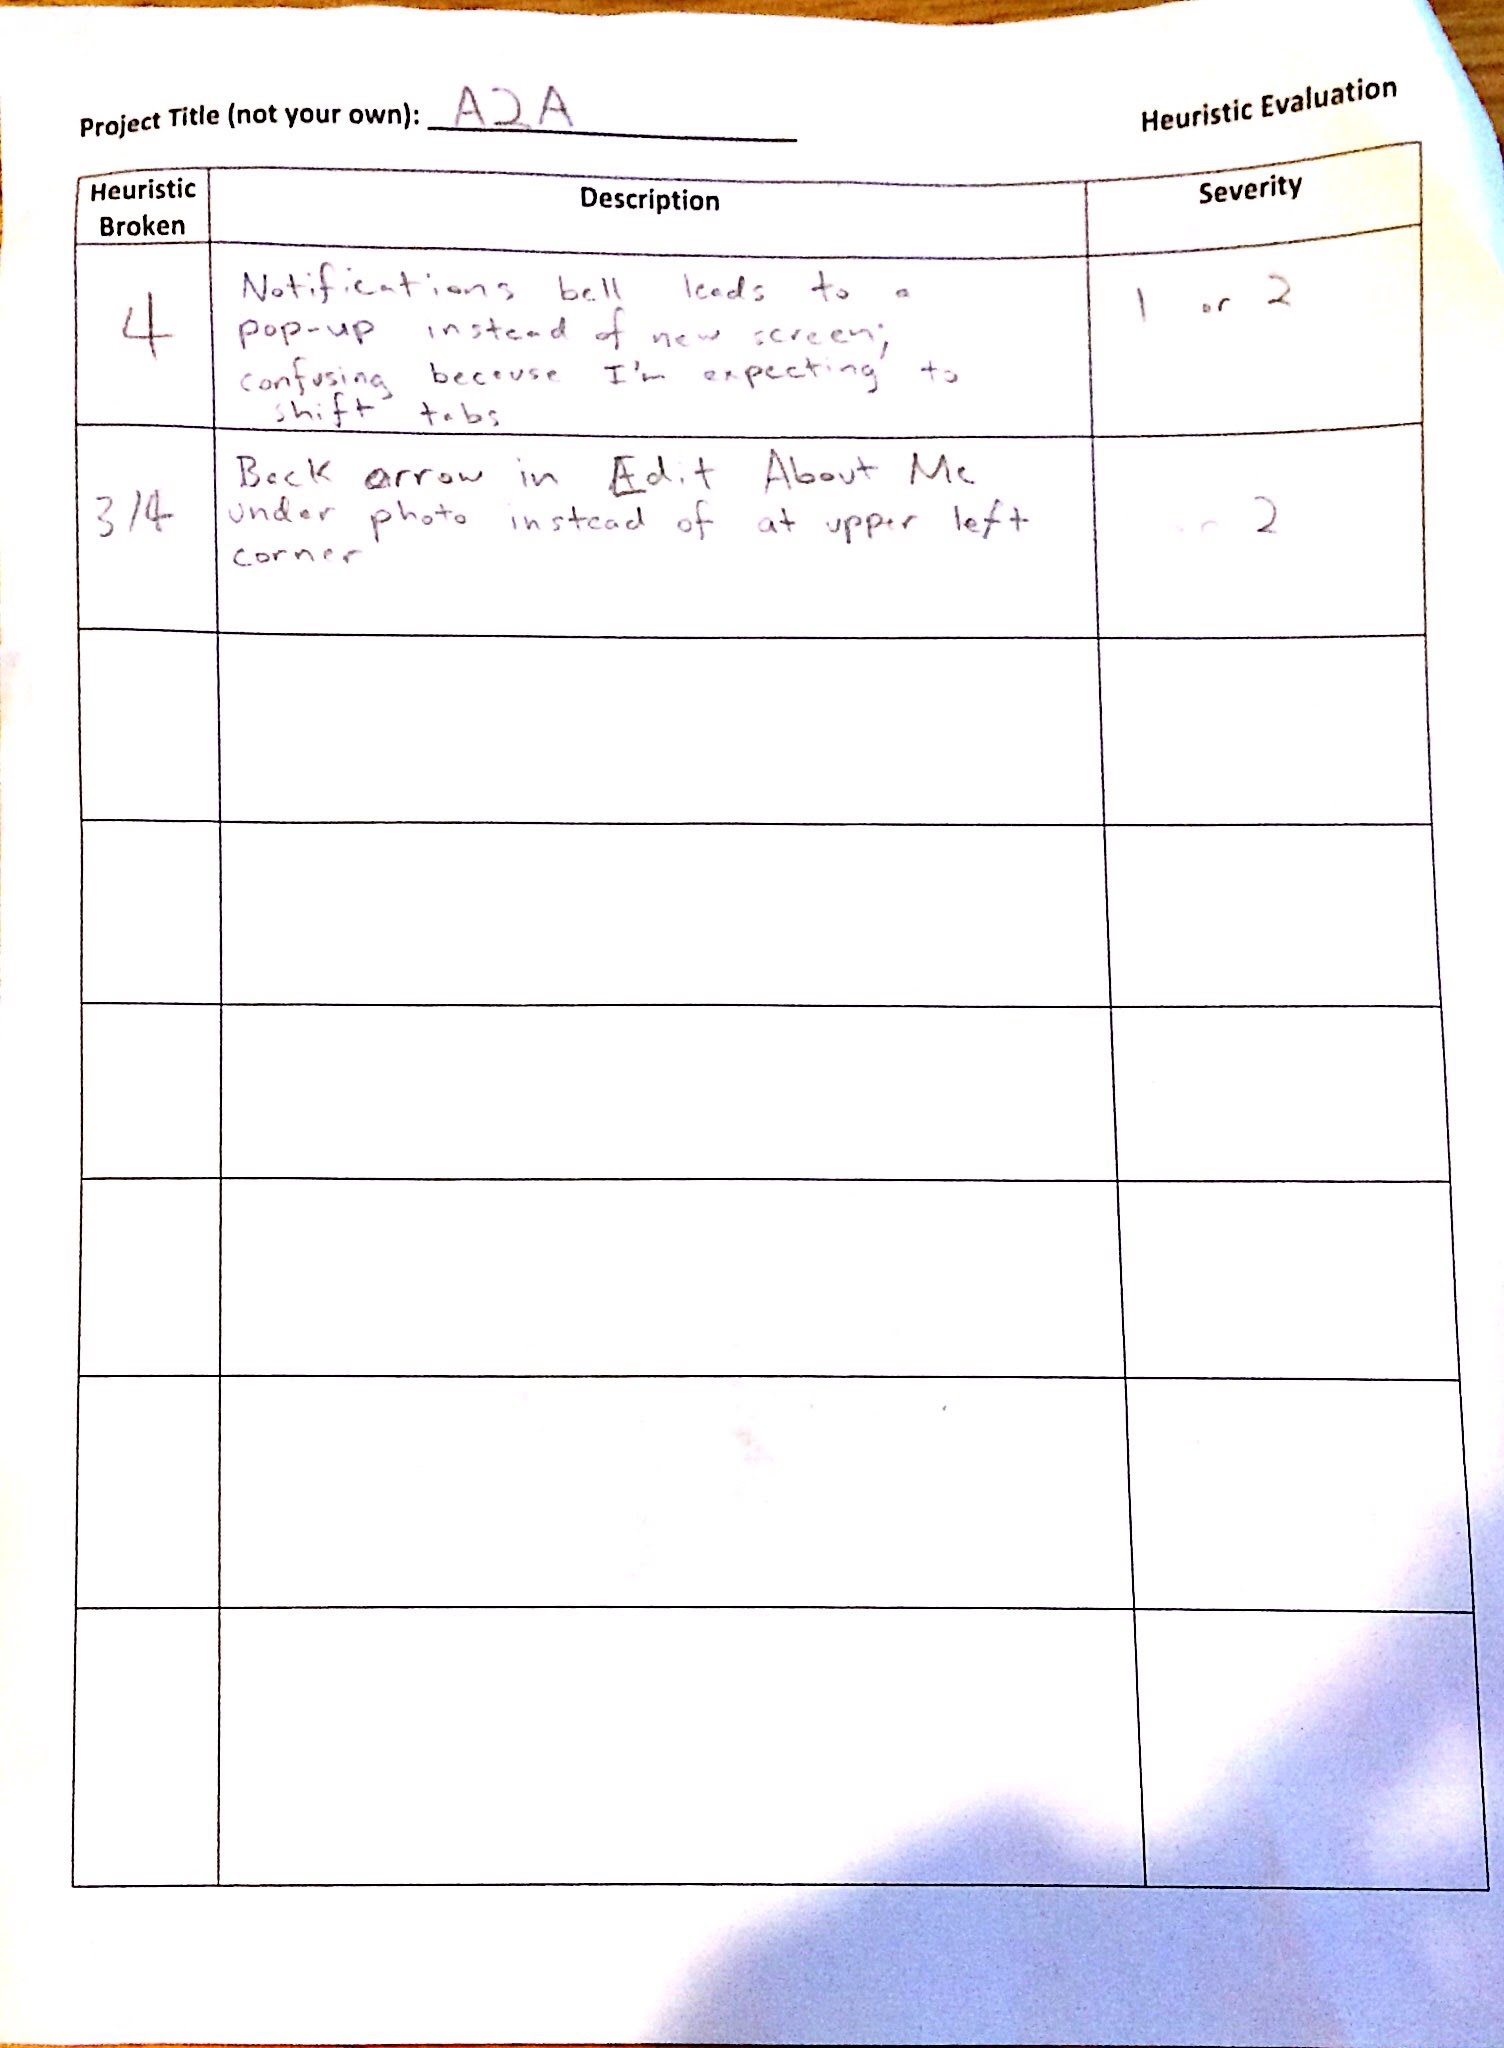 Project Title (not your own): A2A
Heuristic Evaluation
Heuristic Broken
Description
Severity
4
Notifications bell leads to a
pop-up instead of new screen;
confusing because I'm expecting to
shift tabs
1 or 2
3/4
Back arrow in Edit About Me
under photo instead of at upper left
corner
2